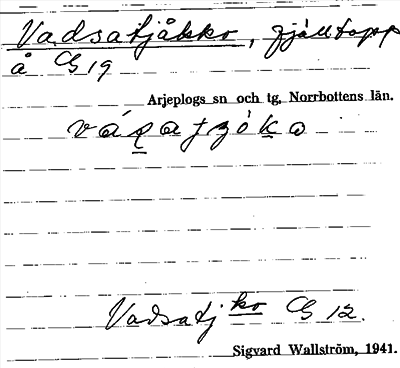 Vadsatjåkko, fjälltopp
å G 19
Arjeplogs sn och tg, Norrbottens län.
Vadsatj ko G 12.
Sigvard Wallström, 1941.